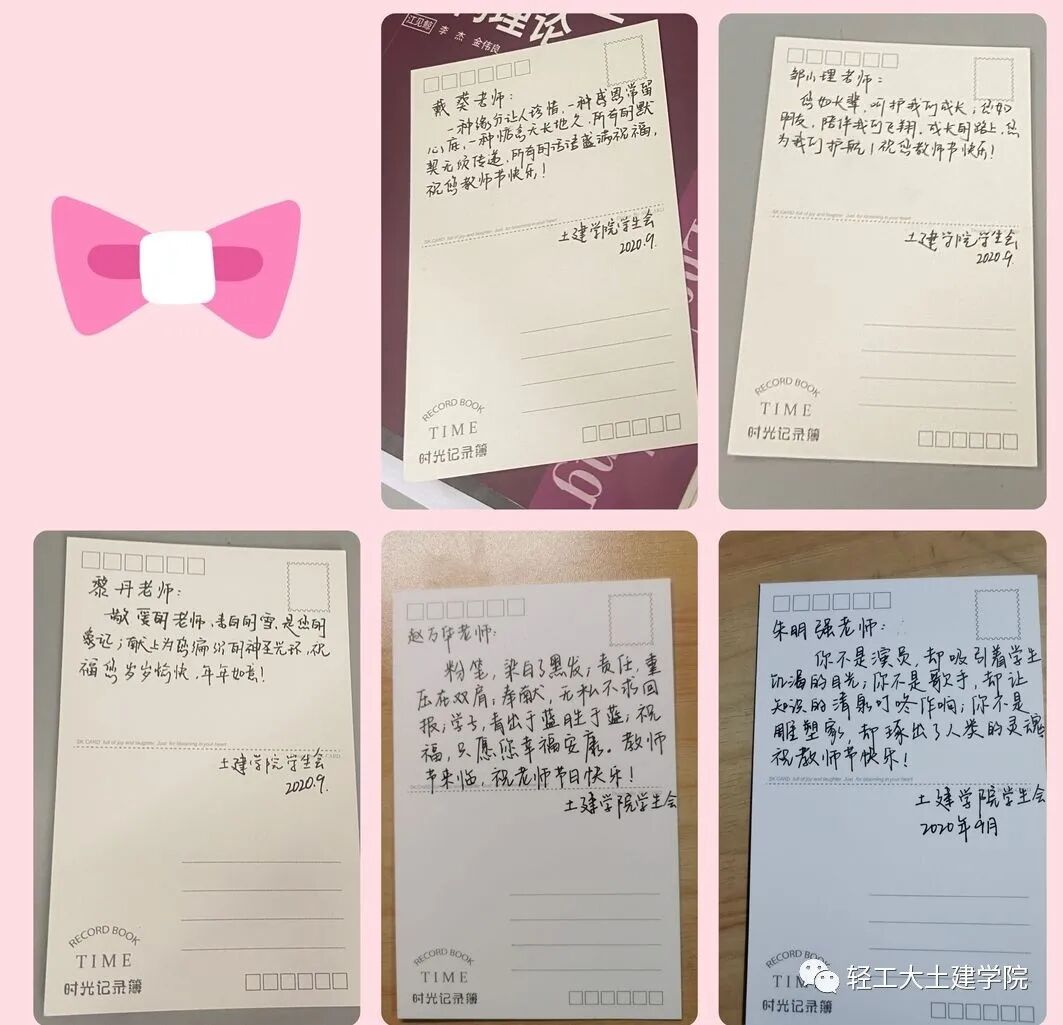 江见鲸
李 杰 金伟良
理论
戴葵老师：
一种缘分让人珍惜，一种感恩常留
心底，一种惦念天长地久，所有的默
契无须传递，所有的话语盛满祝福，
祝您教师节快乐！
SK CARD full of joy and laughter. Just for blooming in your heart
土建学院学生会
2020.9.
RECORD BOOK
TIME
时光记录簿
邹小理老师：
您如长辈，呵护我们成长，您如
朋友，陪伴我们飞翔，成长的路上，您
为我们护航！祝您教师节快乐！
SK CARD full of joy and laughter. Just for blooming in your heart
土建学院学生会
2020.9.
RECORD BOOK
TIME
时光记录簿
黎丹老师：
敬爱的老师，洁白的雪，是您的
象记；献上为您编织的神圣光环，祝
福您岁岁愉快，年年如意！
SK CARD full of joy and laughter. Just for blooming in your heart
土建学院学生会
2020.9.
RECORD BOOK
TIME
时光记录簿
赵万华老师：
粉笔，染白了黑发；责任，重
压在双肩；奉献，无私不求回
报；学子，青出于蓝胜于蓝；祝
福，只愿您幸福安康。教师
节来临，祝老师节日快乐！
土建学院学生会
RECORD BOOK
TIME
时光记录簿
朱明强老师：
你不是演员，却吸引着学生
饥渴的目光；你不是歌手，却让
知识的清泉叮咚作响；你不是
雕塑家，却琢出了人类的灵魂
祝教师节快乐！
SK CARD full of joy and laughter. Just for blooming in your heart
土建学院学生会
2020年9月
RECORD BOOK
TIME
时光记录簿
轻工大土建学院